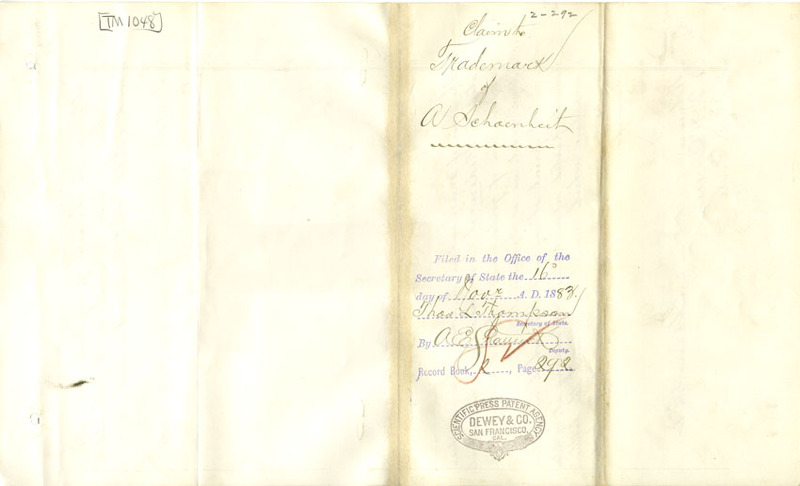 TM 1048
2-292
Claim to
Trademark
of
A Schoenheit
Filed in the Office of the
Secretary of State the 16
day of Novr A. D. 1883
Thos L. Thompson
Secretary of State.
By A E
Deputy.
Record Book, 2, Page 292
SCIENTIFIC PRESS PATENT AGENCY
DEWEY & CO.
SAN FRANCISCO,
CAL.